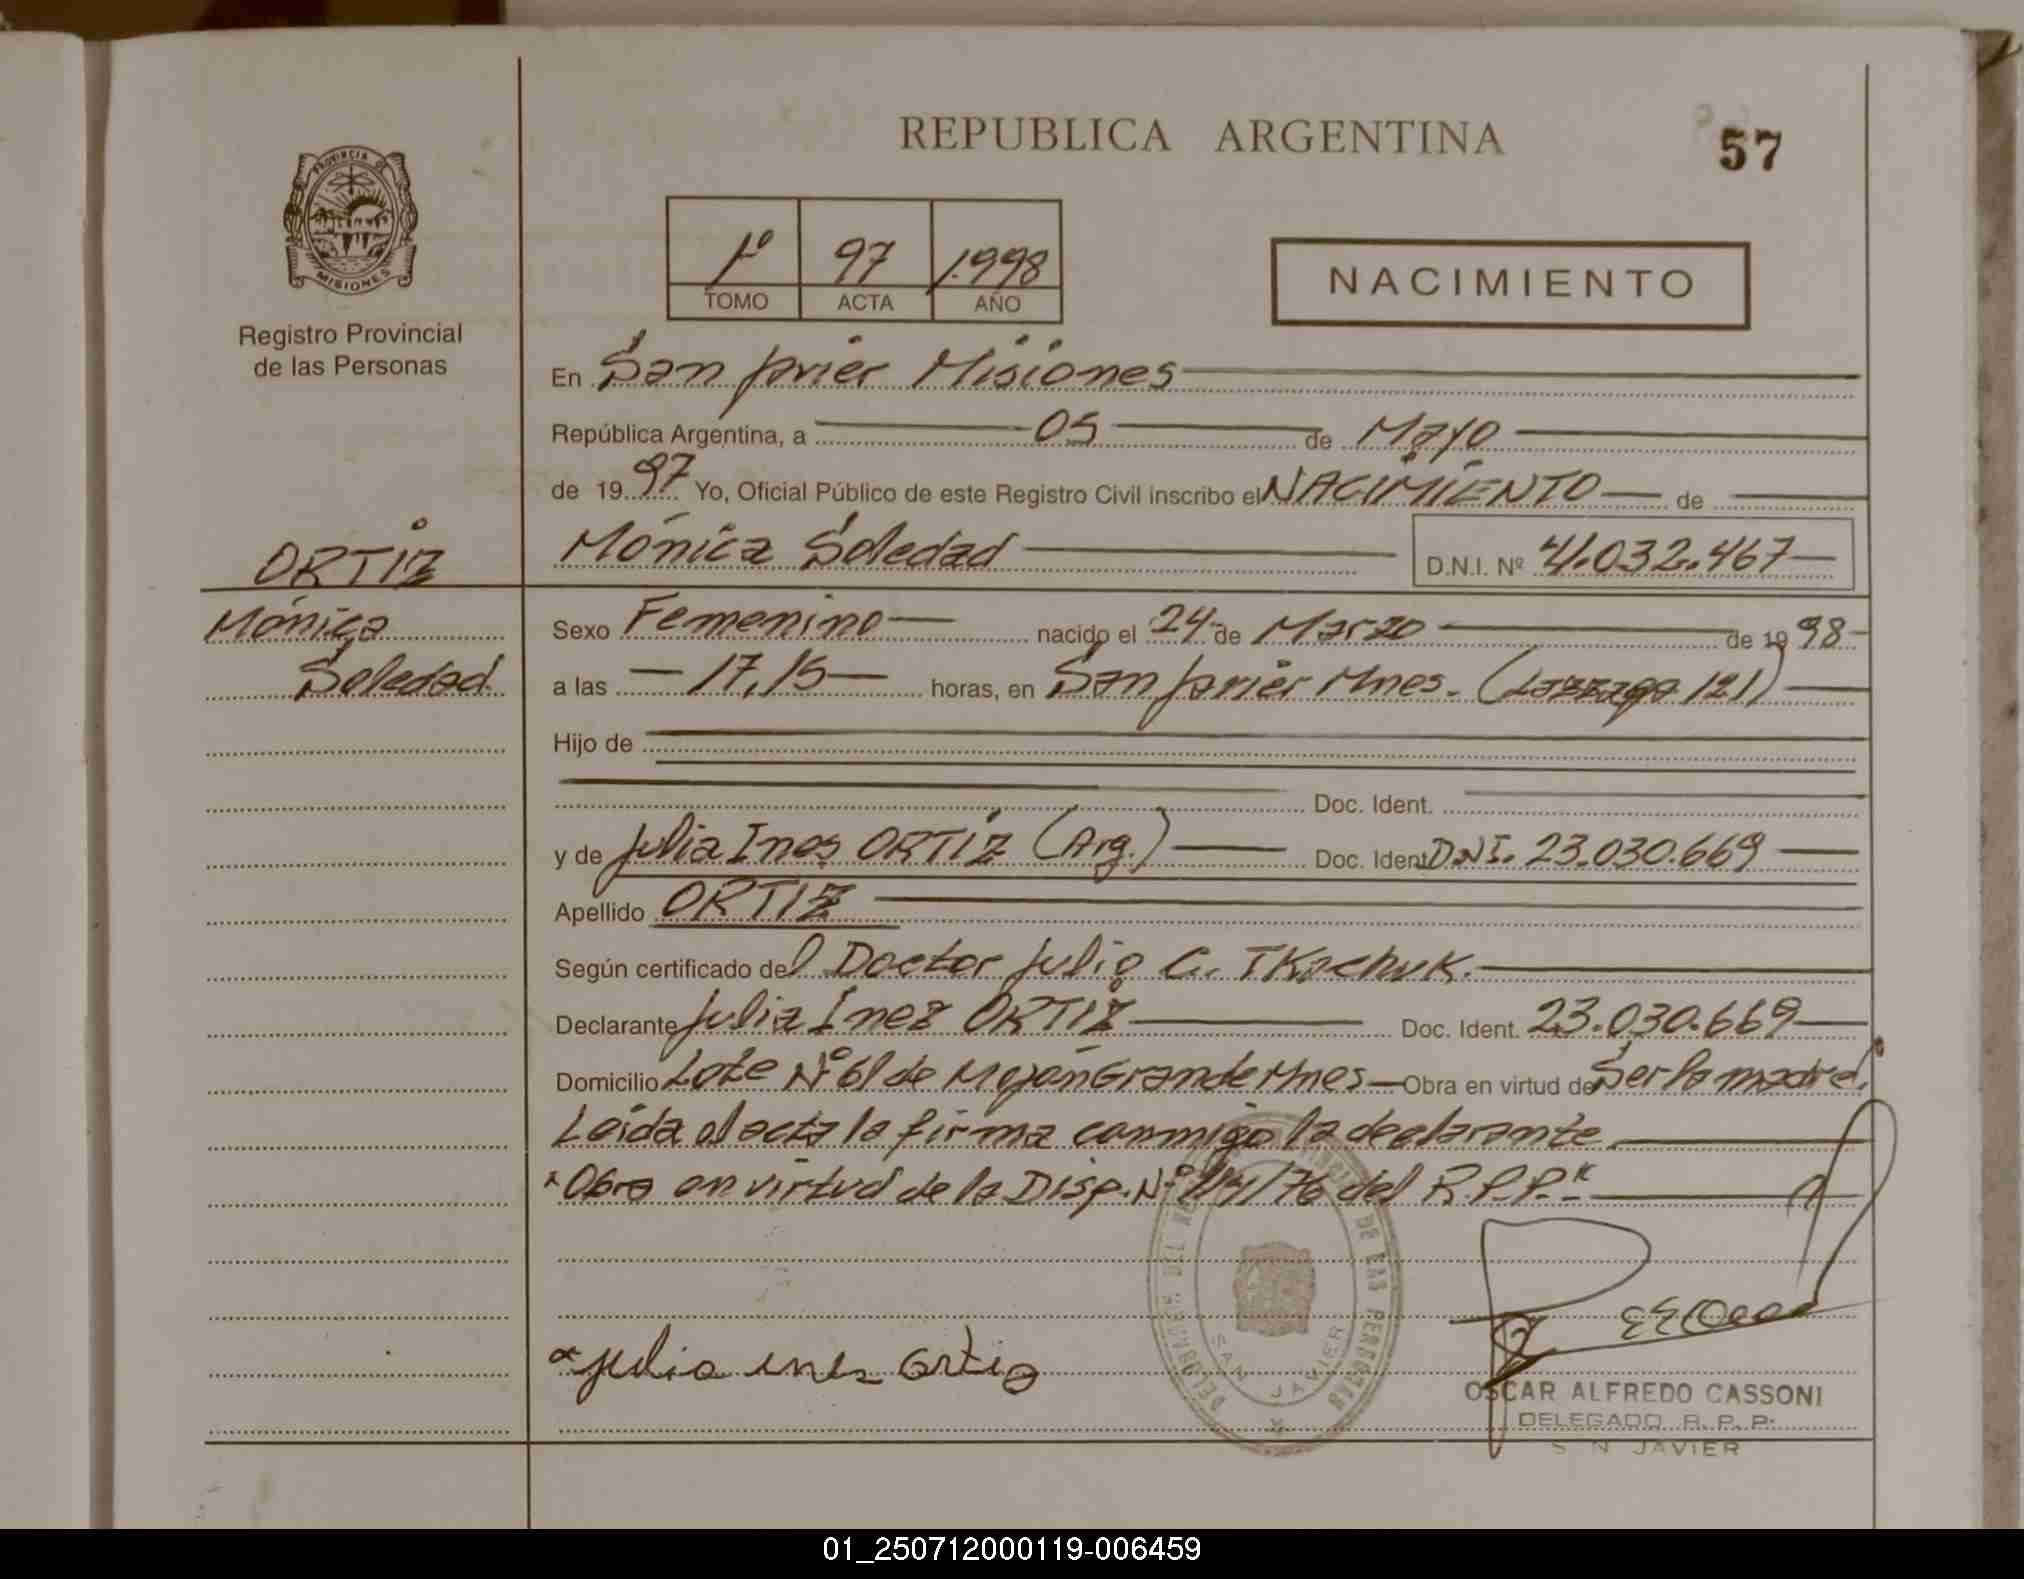 REPUBLICA ARGENTINA
57
PROVINCIA DE
MISIONES
Registro Provincial
de las Personas
1º 97 1.998
TOMO ACTA AÑO
NACIMIENTO
En San Javier Misiones
República Argentina, a 05 de Mayo
de 1997 Yo, Oficial Público de este Registro Civil inscribo el NACIMIENTO de
Mónica Soledad D.N.I. Nº 41.032.467
ORTIZ
Mónica
Soledad
Sexo Femenino nacido el 24 de Marzo de 1998
a las 17,15 horas, en San Javier Mnes. (Lazzaga 121)
Hijo de
Doc. Ident.
y de Julia Ines ORTIZ (Arg.) Doc. Ident. D.N.I. 23.030.669
Apellido ORTIZ
Según certificado del Doctor Julio C. TKachuk.
Declarante Julia Inez ORTIZ Doc. Ident. 23.030.669
Domicilio Lote Nº 61 de Mojón Grande Mnes Obra en virtud de Ser la madre.
Leída el acta la firma conmigo la declarante
"Obra en virtud de la Disp. Nº /76 del R.P.P."
DELEGACION DEL DE LAS PERSONAS
SAN JAVIER
Julia ines Ortiz
OSCAR ALFREDO CASSONI
DELEGADO R. P. P.
S N JAVIER
01_250712000119-006459